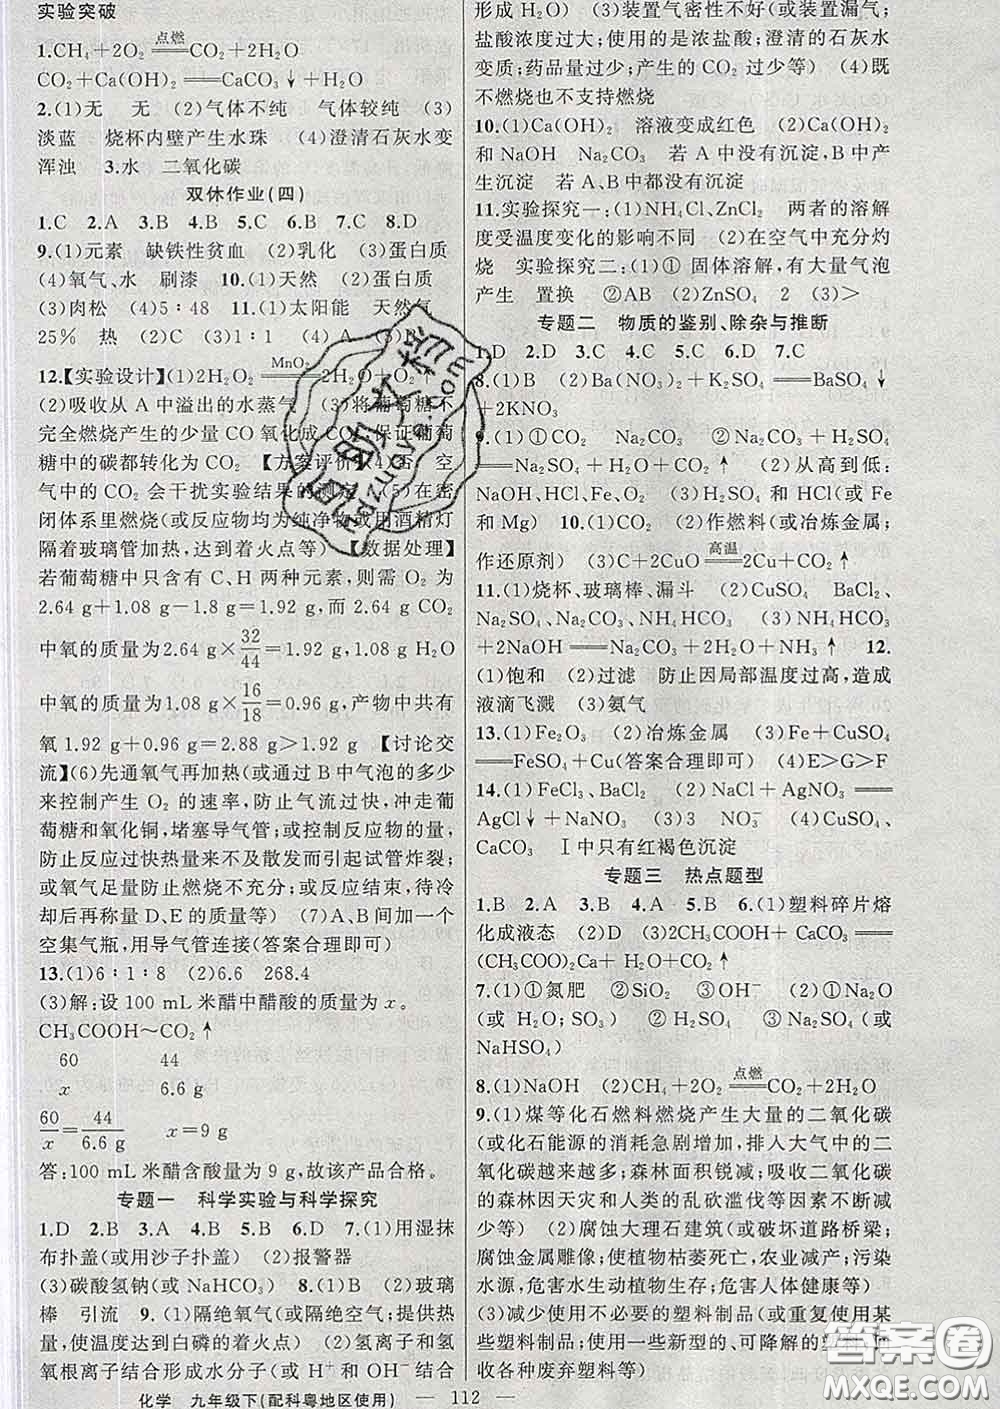 实验突破
1.CH₄+2O₂ 点燃══ CO₂+2H₂O
CO₂+Ca(OH)₂══CaCO₃↓+H₂O
2.(1)无 无 (2)气体不纯 气体较纯 (3)
淡蓝 烧杯内壁产生水珠 (4)澄清石灰水变
浑浊 3.水 二氧化碳
双休作业(四)
1.C 2.A 3.B 4.B 5.C 6.B 7.C 8.D
9.(1)元素 缺铁性贫血 (2)乳化 (3)蛋白质
(4)氧气、水 刷漆 10.(1)天然 (2)蛋白质
(3)肉松 (4)5∶48 11.(1)太阳能 天然气
25% 热 (2)C (3)1∶1 (4)A (5)
12.【实验设计】(1)2H₂O₂ MnO₂══ 2H₂O+O₂↑
(2)吸收从 A 中溢出的水蒸气 (3)将葡萄糖不
完全燃烧产生的少量 CO 氧化成 CO₂,保证葡萄
糖中的碳都转化为 CO₂ 【方案评价】(4)否 空
气中的 CO₂ 会干扰实验结果的测定 (5)在密
闭体系里燃烧(或反应物均为纯净物或用酒精灯
隔着玻璃管加热,达到着火点等) 【数据处理】
若葡萄糖中只含有 C、H 两种元素,则需 O₂ 为
2.64 g+1.08 g-1.8 g=1.92 g,而 2.64 g CO₂
中氧的质量为2.64 g×32/44=1.92 g,1.08 g H₂O
中氧的质量为1.08 g×16/18=0.96 g,产物中共有
氧 1.92 g+0.96 g=2.88 g>1.92 g 【讨论交
流】(6)先通氧气再加热(或通过 B 中气泡的多少
来控制产生 O₂ 的速率,防止气流过快,冲走葡
萄糖和氧化铜,堵塞导气管;或控制反应物的量,
防止反应过快热量来不及散发而引起试管炸裂;
或氧气足量防止燃烧不充分;反应结束,待冷
却后再称量 D、E 的质量等) (7)A、B 间加一个
空集气瓶,用导气管连接(答案合理即可)
13.(1)6∶1∶8 (2)6.6 268.4
(3)解:设 100 mL 米醋中醋酸的质量为 x。
CH₃COOH~CO₂↑
60 44
x 6.6 g
60/x=44/6.6 g x=9 g
答:100 mL 米醋含酸量为 9 g,故该产品合格。
专题一 科学实验与科学探究
1.D 2.B 3.A 4.B 5.B 6.D 7.(1)用湿抹
布扑盖(或用沙子扑盖) (2)报警器
(3)碳酸氢钠(或 NaHCO₃) 8.(1)B (2)玻璃
棒 引流 9.(1)隔绝氧气(或隔绝空气;提供热
量,使温度达到白磷的着火点) (2)氢离子和氢
氧根离子结合形成水分子(或 H⁺和 OH⁻结合
形成 H₂O) (3)装置气密性不好(或装置漏气;
盐酸浓度过大;使用的是浓盐酸;澄清的石灰水
变质;药品量过少;产生的 CO₂ 过少等) (4)既
不燃烧也不支持燃烧
10.(1)Ca(OH)₂ 溶液变成红色 (2)Ca(OH)₂
和 NaOH Na₂CO₃ 若 A 中没有沉淀,B 中产
生沉淀 若 A、B 中都没有沉淀
11.实验探究一:(1)NH₄Cl、ZnCl₂ 两者的溶解
度受温度变化的影响不同 (2)在空气中充分灼
烧 实验探究二:(1)① 固体溶解,有大量气泡
产生 置换 ②AB (2)ZnSO₄ 2 (3)>
专题二 物质的鉴别、除杂与推断
1.D 2.D 3.C 4.C 5.C 6.D 7.C
8.(1)B (2)Ba(NO₃)₂+K₂SO₄══BaSO₄↓
+2KNO₃
9.(1)①CO₂ Na₂CO₃ ②Na₂CO₃+H₂SO₄
══Na₂SO₄+H₂O+CO₂↑ (2)从高到低:
NaOH、HCl、Fe、O₂ (3)H₂SO₄ 和 HCl(或 Fe
和 Mg) 10.(1)CO₂ (2)作燃料(或冶炼金属;
作还原剂) (3)C+2CuO 高温══ 2Cu+CO₂↑
11.(1)烧杯、玻璃棒、漏斗 (2)CuSO₄ BaCl₂、
Na₂SO₄、Na₂CO₃、NH₄HCO₃ (3)NH₄HCO₃
+2NaOH══Na₂CO₃+2H₂O+NH₃↑ 12.
(1)饱和 (2)过滤 防止因局部温度过高,造成
液滴飞溅 (3)氨气
13.(1)Fe₂O₃ (2)冶炼金属 (3)Fe+CuSO₄
══FeSO₄+Cu(答案合理即可) (4)E>G>F
14.(1)FeCl₃、BaCl₂ (2)NaCl+AgNO₃══
AgCl↓+NaNO₃ (3)3 NO₃⁻ (4)CuSO₄、
CaCO₃ Ⅰ中只有红褐色沉淀
专题三 热点题型
1.B 2.A 3.B 4.A 5.B 6.(1)塑料碎片熔
化成液态 (2)D (3)2CH₃COOH+CaCO₃══
(CH₃COO)₂Ca+H₂O+CO₂↑
7.(1)①氮肥 ②SiO₂ ③OH⁻ (2)①Na₂O
(或 H₂O;SO₃) ②H₂SO₄ ③Na₂SO₄(或
NaHSO₄)
8.(1)NaOH (2)CH₄+2O₂ 点燃══ CO₂+2H₂O
9.(1)煤等化石燃料燃烧产生大量的二氧化碳
(或化石能源的消耗急剧增加,排入大气中的二
氧化碳增多;森林面积锐减;吸收二氧化碳
的森林因天灾和人类的乱砍滥伐等因素不断减
少等) (2)腐蚀大理石建筑(或破坏道路桥梁;
腐蚀金属雕像;使植物枯萎死亡,农业减产;污染
水源,危害水生动植物生存;危害人体健康等)
(3)减少使用不必要的塑料制品(或重复使用某
些塑料制品;使用一些新型的、可降解的塑料;回
收各种废弃塑料等)
化学 九年级下(配科粤地区使用) — 112 —
答案圈
MXQE.COM